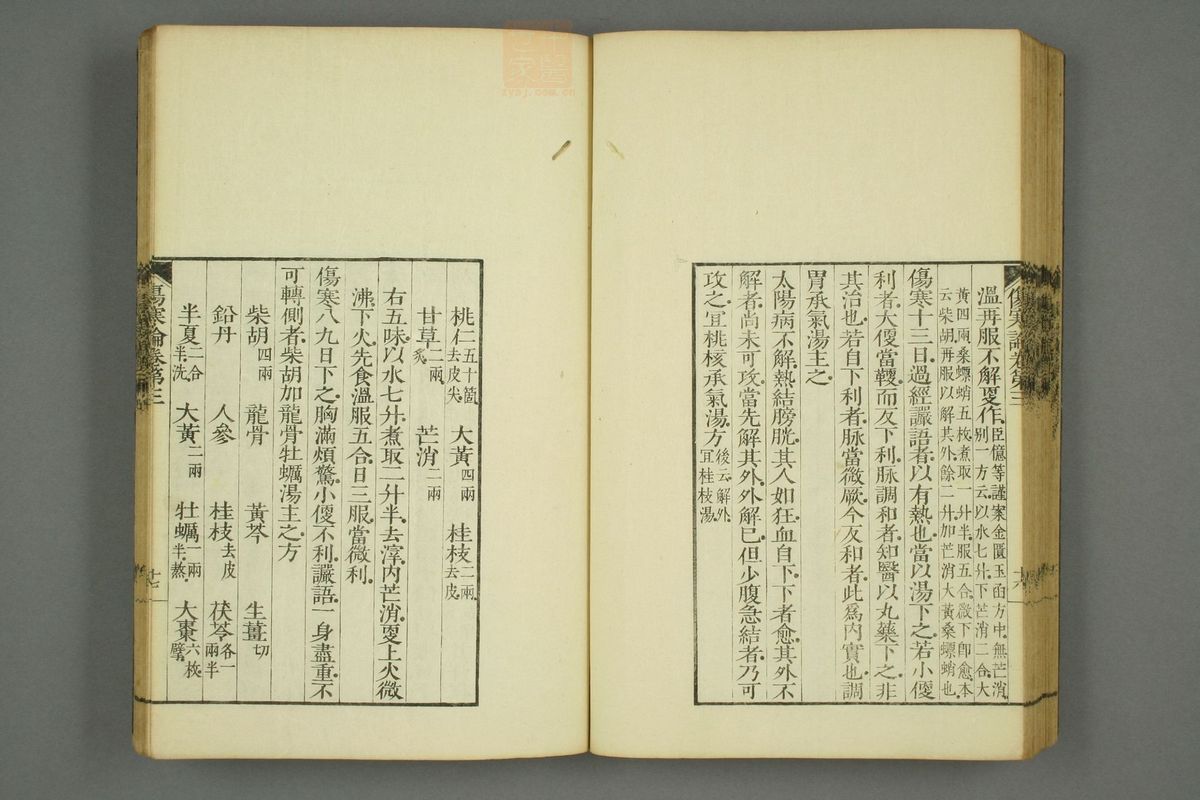 溫再服不解更作臣億等謹案金匱玉函方中無芒消
別一方云以水七升下芒消二合大
黃四兩桑螵蛸五枚煮取一升半服五合微下即愈本
云柴胡再服以解其外餘二升加芒消大黃桑螵蛸也
傷寒十三日過經讝語者以有熱也當以湯下之若小便
利者大便當鞕而反下利脉調和者知醫以丸藥下之非
其治也若自下利者脉當微厥今反和者此爲內實也調
胃承氣湯主之
太陽病不解熱結膀胱其人如狂血自下下者愈其外不
解者尚未可攻當先解其外外解已但少腹急結者乃可
攻之宜桃核承氣湯方後云解外
宜桂枝湯
桃仁五十箇去皮尖 大黃四兩 桂枝二兩去皮
甘草二兩炙 芒消二兩
右五味以水七升煮取二升半去滓內芒消更上火微
沸下火先食溫服五合日三服當微利
傷寒八九日下之胸滿煩驚小便不利讝語一身盡重不
可轉側者柴胡加龍骨牡蠣湯主之方
柴胡四兩 龍骨 黃芩 生薑切
鉛丹 人參 桂枝去皮 茯苓各一兩半
半夏二合半洗 大黃二兩 牡蠣一兩半熬 大棗六枚擘
傷寒論卷第三
十七
傷寒論卷第三
十六
zysj.com.cn